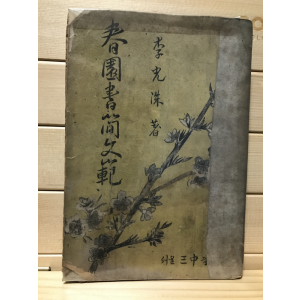 春園書簡文範
李光洙 著
서울 三中